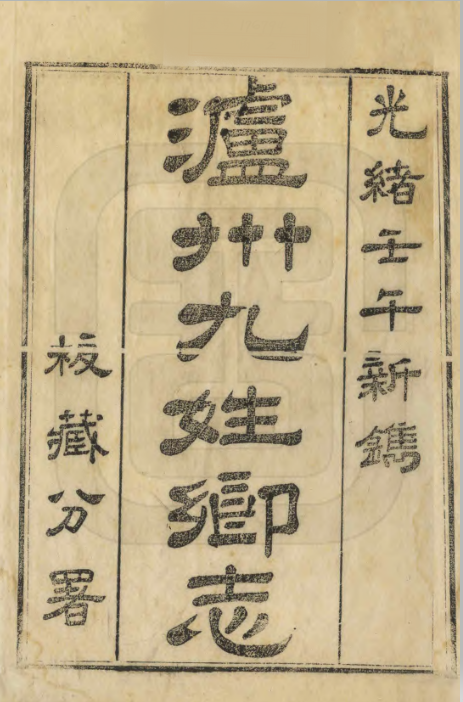 光緒壬午新鐫
瀘州九姓鄉志
板藏分署